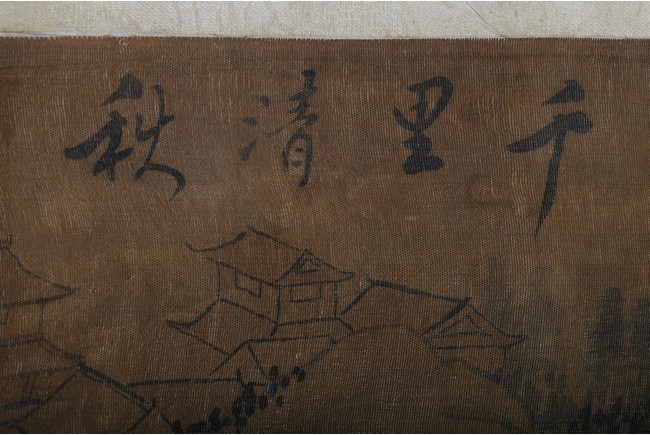 千里清秋